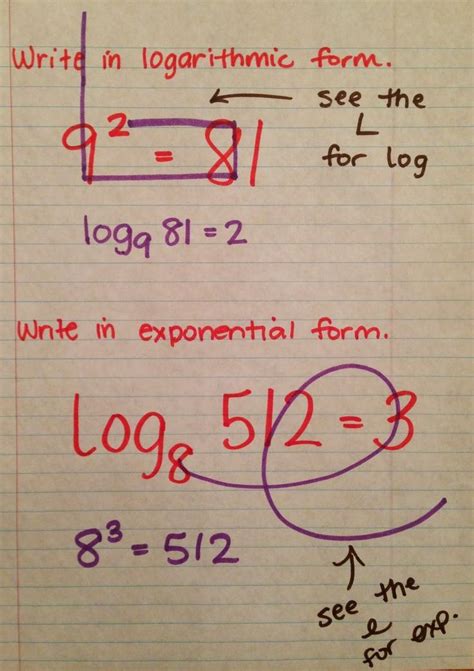 Write in logarithmic form.
9² = 81
see the
L
for log
log₉ 81 = 2
Write in exponential form.
log₈ 512 = 3
8³ = 512
see the
e
for exp.